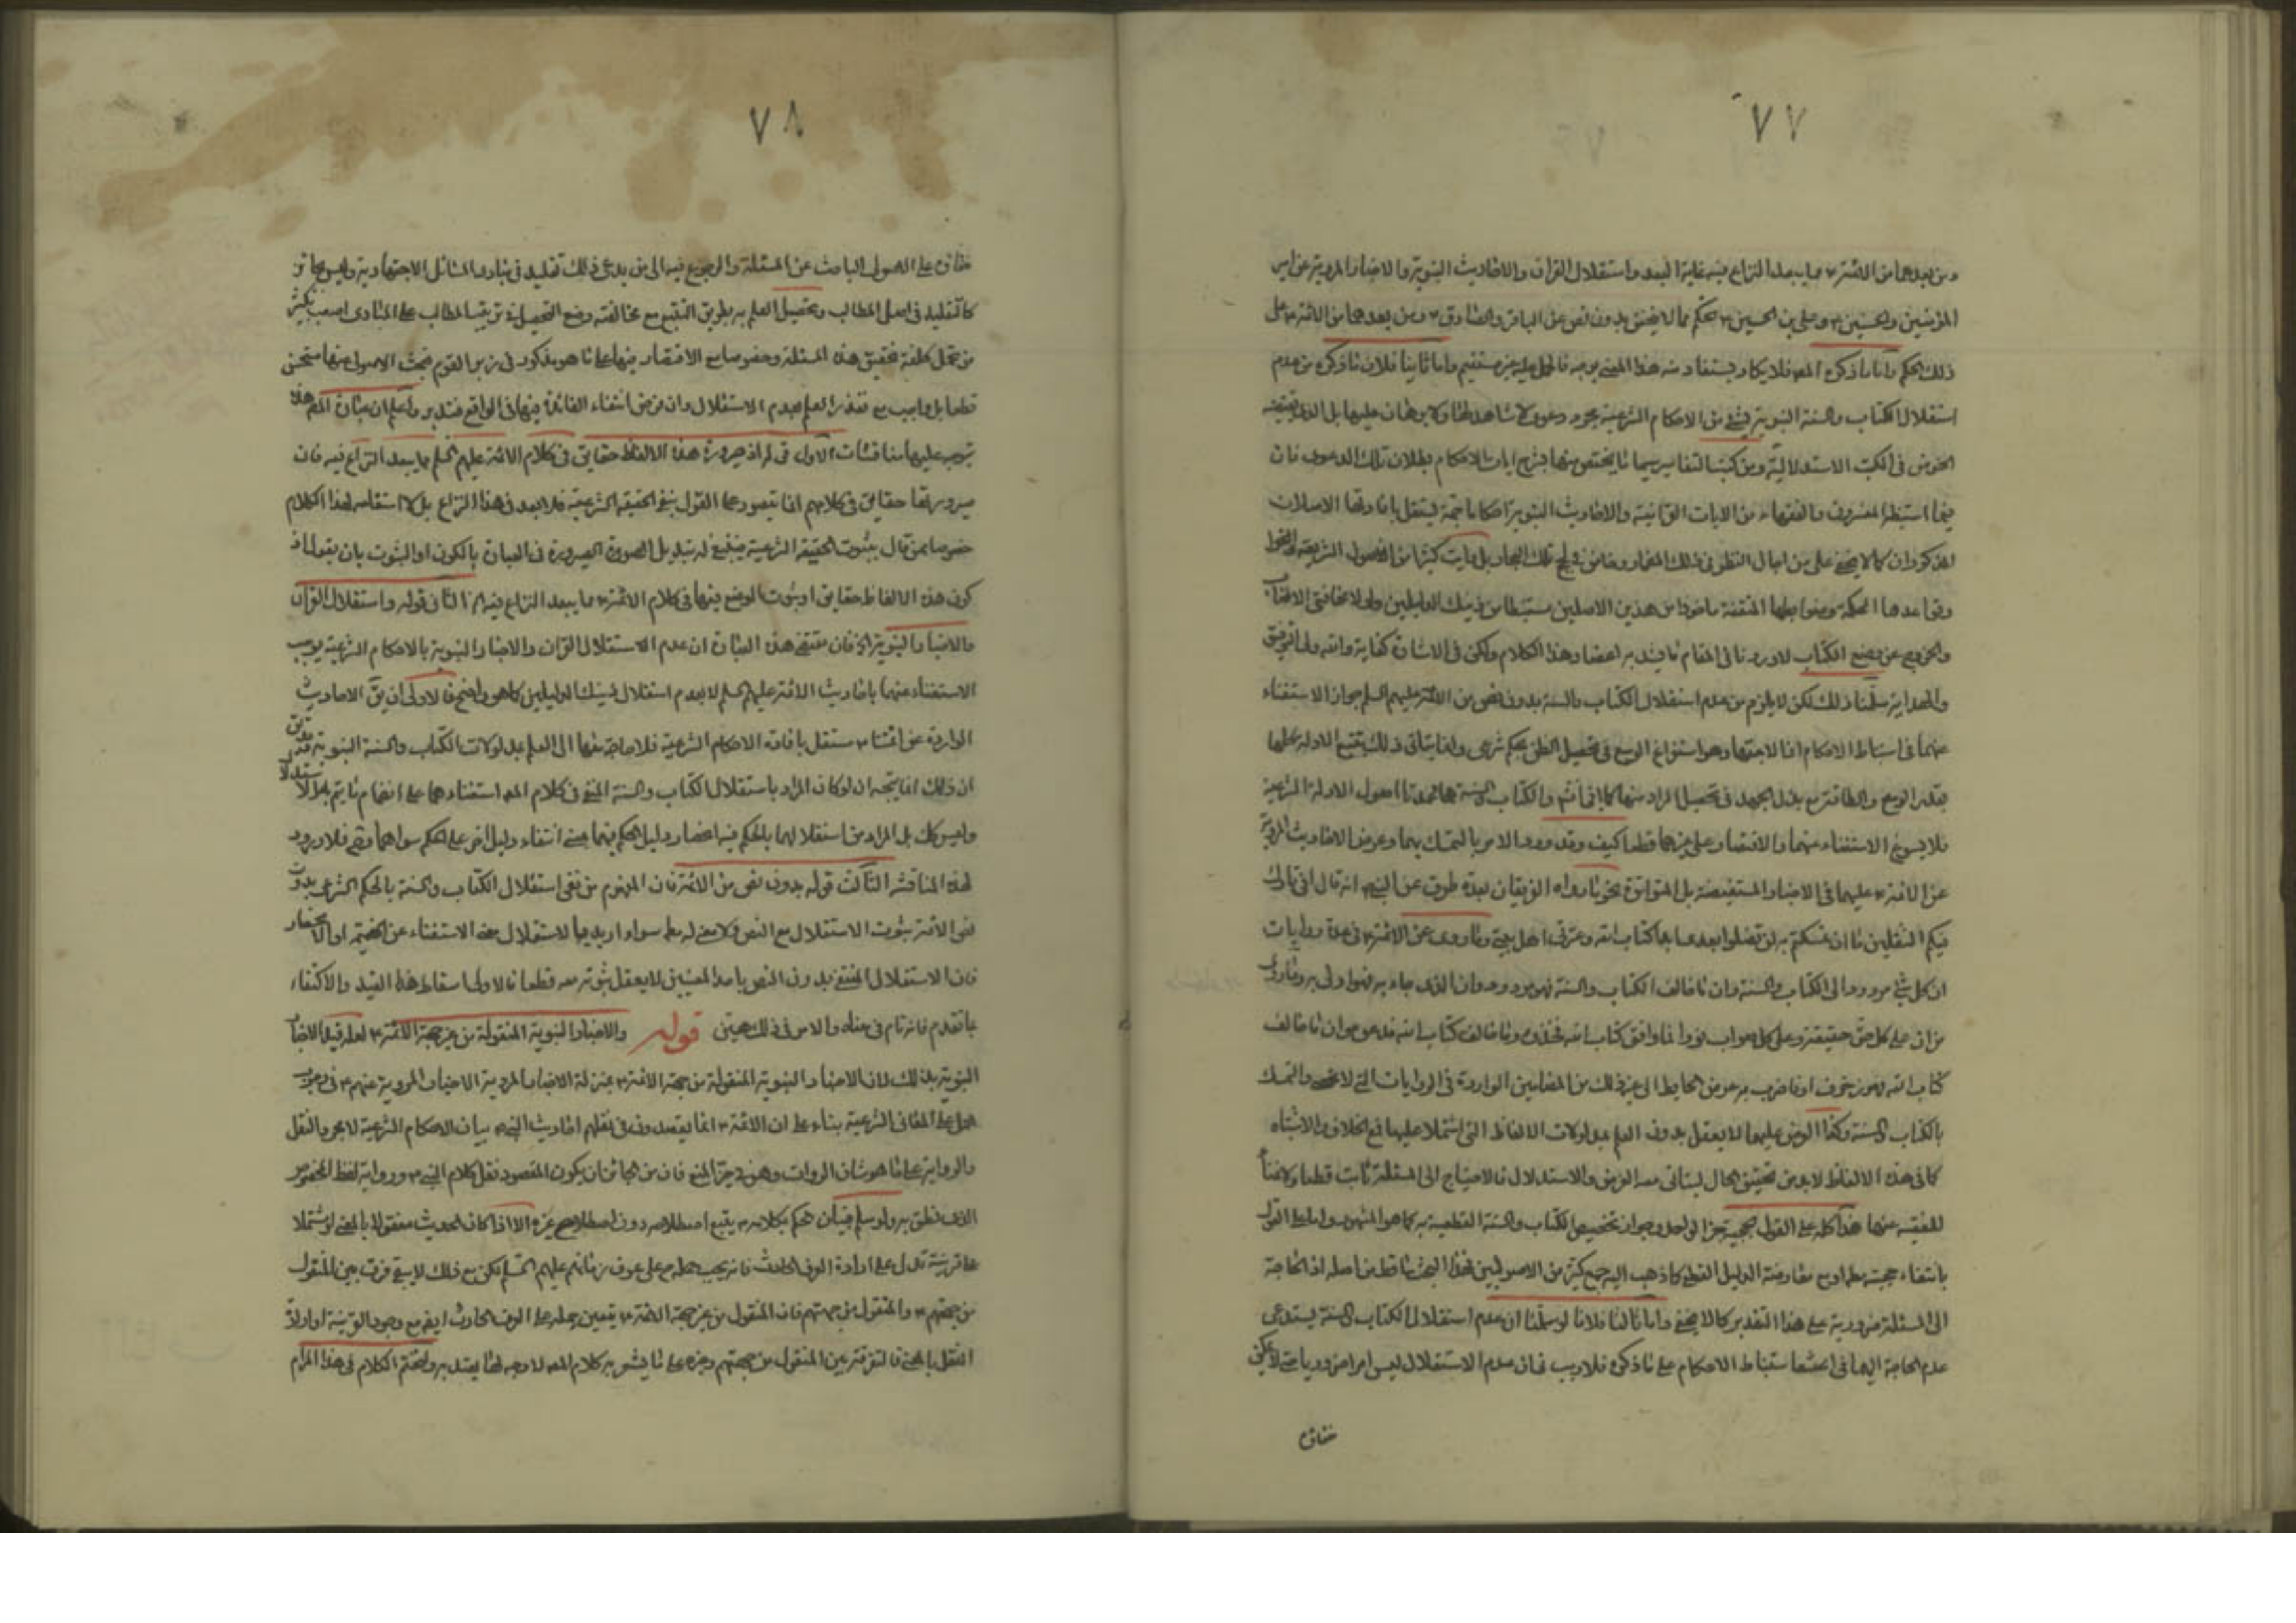 ٧٧
ومن بعدهما من الائمة ع مما يبعد النزاع فيه غاية البعد واستقلال القران والاحاديث النبوية والاخبار المروية عن امير
المؤمنين والحسنين ع وعلي بن الحسين ع بحكم مما لا يتحقق بدون نص من الباقر والصادق ع ومن بعدهما من الائمة ع على
ذلك الحكم واما ما ذكره المصـ فلا يكاد يستفاد منه هذا المعنى بوجه فالحمل عليه غير مستقيم واما ثانيا فلان ما ذكره من عدم
استقلال الكتاب والسنة النبوية بشئ من الاحكام الشرعية مجرد دعوى لا شاهد لها ولا برهان عليها بل الذي يقتضيه
الخوض في الكتب الاستدلالية ومن كتب التفاسير سيما ما يختص منها بشرح ايات الاحكام بطلان تلك الدعوى فان
فيما استنبطه المفسرون والفقهاء من الايات القرانية والاحاديث النبوية احكاما جمة يستقل بافادتها الاصلان
المذكوران كما لا يخفى على من اجال النظر في ذلك المضمار وخاض في لجج تلك البحار بل رايت كثيرا من اصول الشريعة
وقواعدها المحكمة وضوابطها المتقنة ماخوذا من هذين الاصلين مستنبطا من ذينك الدليلين ولولا مخافتي الاطناب
والخروج عن وضع الكتاب لاوردنا في المقام ما يشد به اعضاد هذا الكلام ولكن في الاشارة كفاية والله ولي التوفيق
والهداية سلمنا ذلك لكن لا يلزم من عدم استقلال الكتاب والسنة بدون نص من الائمة عليهم السلم جواز الاستغناء
عنهما في استنباط الاحكام اذ الاجتهاد هو استفراغ الوسع في تحصيل الظن بحكم شرعي وانما يتاتى ذلك بتتبع الادلة كلها
بقدر الوسع والطاقة مع بذل الجهد في تحصيل المراد منها كما في الكتاب والسنة هما عمدتا اصول الادلة الشرعية
فلا يسوغ الاستغناء عنهما والاقتصار على غيرهما قطعا كيف وقد ورد الامر بالتمسك بهما وعرض الاحاديث المروية
عن الائمة ع عليهما في الاخبار المستفيضة بل المتواترة نحو ما رواه الفريقان بعدة طرق عن النبي ص انه قال اني تارك
فيكم الثقلين ما ان تمسكتم به لن تضلوا بعدي كتاب الله وعترتي اهل بيتي وما روى عن الائمة ع في عدة روايات
ان كل شئ مردود الى الكتاب والسنة وان ما خالف الكتاب والسنة فهو مردود وان الذي جاء به فهو اولى به وما روى
من ان على كل حق حقيقة وعلى كل صواب نورا فما وافق كتاب الله فخذوه وما خالف كتاب الله فدعوه وان ما خالف
كتاب الله فهو زخرف او فاضرب به عرض الحائط الى غير ذلك من المضامين الواردة في الروايات التي لا تحصى والتمسك
بالكتاب والسنة وكذا العرض عليهما لا يعقل بدون العلم بمدلولات الالفاظ التي اشتملا عليها فمع الخلاف والاشتباه
كما في هذه الالفاظ لا بد من تحقيق الحال ليتاتى معه العرض والاستدلال فالاحتياج الى المسئلة ثابت قطعا ولا غناء
للفقيه عنها هذا كله على القول بحجية خبر الواحد وجواز تخصيص الكتاب والسنة القطعية به كما هو المشهور واما على القول
بانتفاء حجيته مطلقا او مع معارضة الدليل القطعي كما ذهب اليه جمع كثير من الاصوليين فهذا البحث ساقط من اصله اذ الحاجة
الى المسئلة ضرورية على هذا التقدير كما لا يخفى واما ثالثا فلانا لو سلمنا ان عدم استقلال الكتاب والسنة يستدعي
عدم الحاجة اليهما في استنباط الاحكام على ما ذكره فلا ريب في ان عدم الاستقلال ليس امرا ضروريا حتى لا يمكن
٧٨
على الاصولي الباحث عن المسئلة والرجوع فيه الى من يدعي ذلك تقليد في مبادى المسائل الاجتهادية وليس بجائز
كالتقليد في اصل المطالب وتحصيل العلم به بطريق التتبع مع مخالفته وضع التحصيل في ترتيب المطالب على المبادى اصعب بكثير
من تحمل كلفة تحقيق هذه المسئلة وخصوصا مع الاقتصار فيها على ما هو مذكور في زبر القوم فبحث الاصولي عنها مستحسن
قطعا بل واجب مع تعذر العلم بعدم الاستقلال وان فرض انتفاء الفائدة فيها في الواقع فتدبر واعلم ان عبارة المصـ هذه
يتوجه عليها مناقشات الاول قوله اذ صيرورة هذه الالفاظ حقايق في كلام الائمة عليهم السلم مما يبعد النزاع فيه فان
صيرورتها حقايق في كلامهم انما يتصور على القول بنفي الحقيقة الشرعية فلا بعد في هذا النزاع بل لا استقامة لهذا الكلام
خصوصا ممن قال بثبوت الحقيقة الشرعية فينبغي له تبديل الصيرورة في العبارة بالكون او الثبوت بان يقول اذ
كون هذه الالفاظ حقايق او ثبوت الوضع فيها في كلام الائمة ع مما يبعد النزاع فيه الثاني قوله واستقلال القران
والاخبار النبوية الخ فان مقتضى هذه العبارة ان عدم الاستقلال القران والاخبار النبوية بالاحكام الشرعية يوجب
الاستغناء عنهما باحاديث الائمة عليهم السلم لا بعدم استقلال ذينك الدليلين كما هو واضح فالاولى ان يق الاحاديث
الواردة عن ائمتنا ع مستقل بافادة الاحكام الشرعية فلا حاجة معها الى العلم بمدلولات الكتاب والسنة النبوية
ان ذلك انما يتجه ان لو كان المراد باستقلال الكتاب والسنة المنفي في كلام المصـ استغناءهما على انضمام ما يتم به الاستدلال
وليس كك بل المراد من استقلالهما بالحكم فيه انحصار دليل الحكم فيهما بمعنى انتفاء دليل اخر على الحكم سواهما وح فلا ورود
لهذه المناقشة الثالث قوله بدون نص من الائمة فان المفهوم من نفي استقلال الكتاب والسنة بالحكم الشرعي بدون
نص الائمة ثبوت الاستقلال مع النص ولا معنى له معه سواء اريد بها الاستقلال بمعنى الاستغناء عن الضميمة او الانحصار
فان الاستقلال المنتفي بدون النص باحد المعنيين لا يعقل ثبوته معه قطعا فالاولى اسقاط هذا القيد والاكتفاء
بما تقدم فانه تام في معناه والامر في ذلك هين قوله والاخبار النبوية المنقولة من غير جهة الائمة ع لعله قيد الاخبار
النبوية بذلك لان الاخبار النبوية المنقولة من جهة الائمة ع بمنزلة الاخبار المروية الاخبار المروية عنهم ع في وجوب
الحمل على المعاني الشرعية بناء على ان الائمة ع انما يقصدون في نقلهم احاديث النبي ص بيان الاحكام الشرعية لا مجرد النقل
والرواية على ما هو شان الروات وهو في حيز المنع فان من الجائز ان يكون المقصود نقل كلام النبي ص ورواية لفظ المخصوص
الذي نطق به ولو سلم فبيان الحكم بكلامه ص يتبع اصطلاحه دون اصطلاح غيره الا اذا كان الحديث منقولا بالمعنى او مشتملا
على قرينة تدل على ارادة العرف الحادث فانه يجب حمله ح على عرف زمانهم عليهم السلم لكن مع ذلك لا يبقى فرق بين المنقول
من جهتهم ع والمنقول من جهتهم فان المنقول من غير جهة الائمة ع يتعين حمله على العرف الحادث ايضا مع وجود القرينة او ارادة
النقل بالمعنى فالتفرقة بين المنقول من جهتهم وغيره على ما يشعر به كلام المصـ لا وجه لها يعتد به ولنختم الكلام في هذا المرام